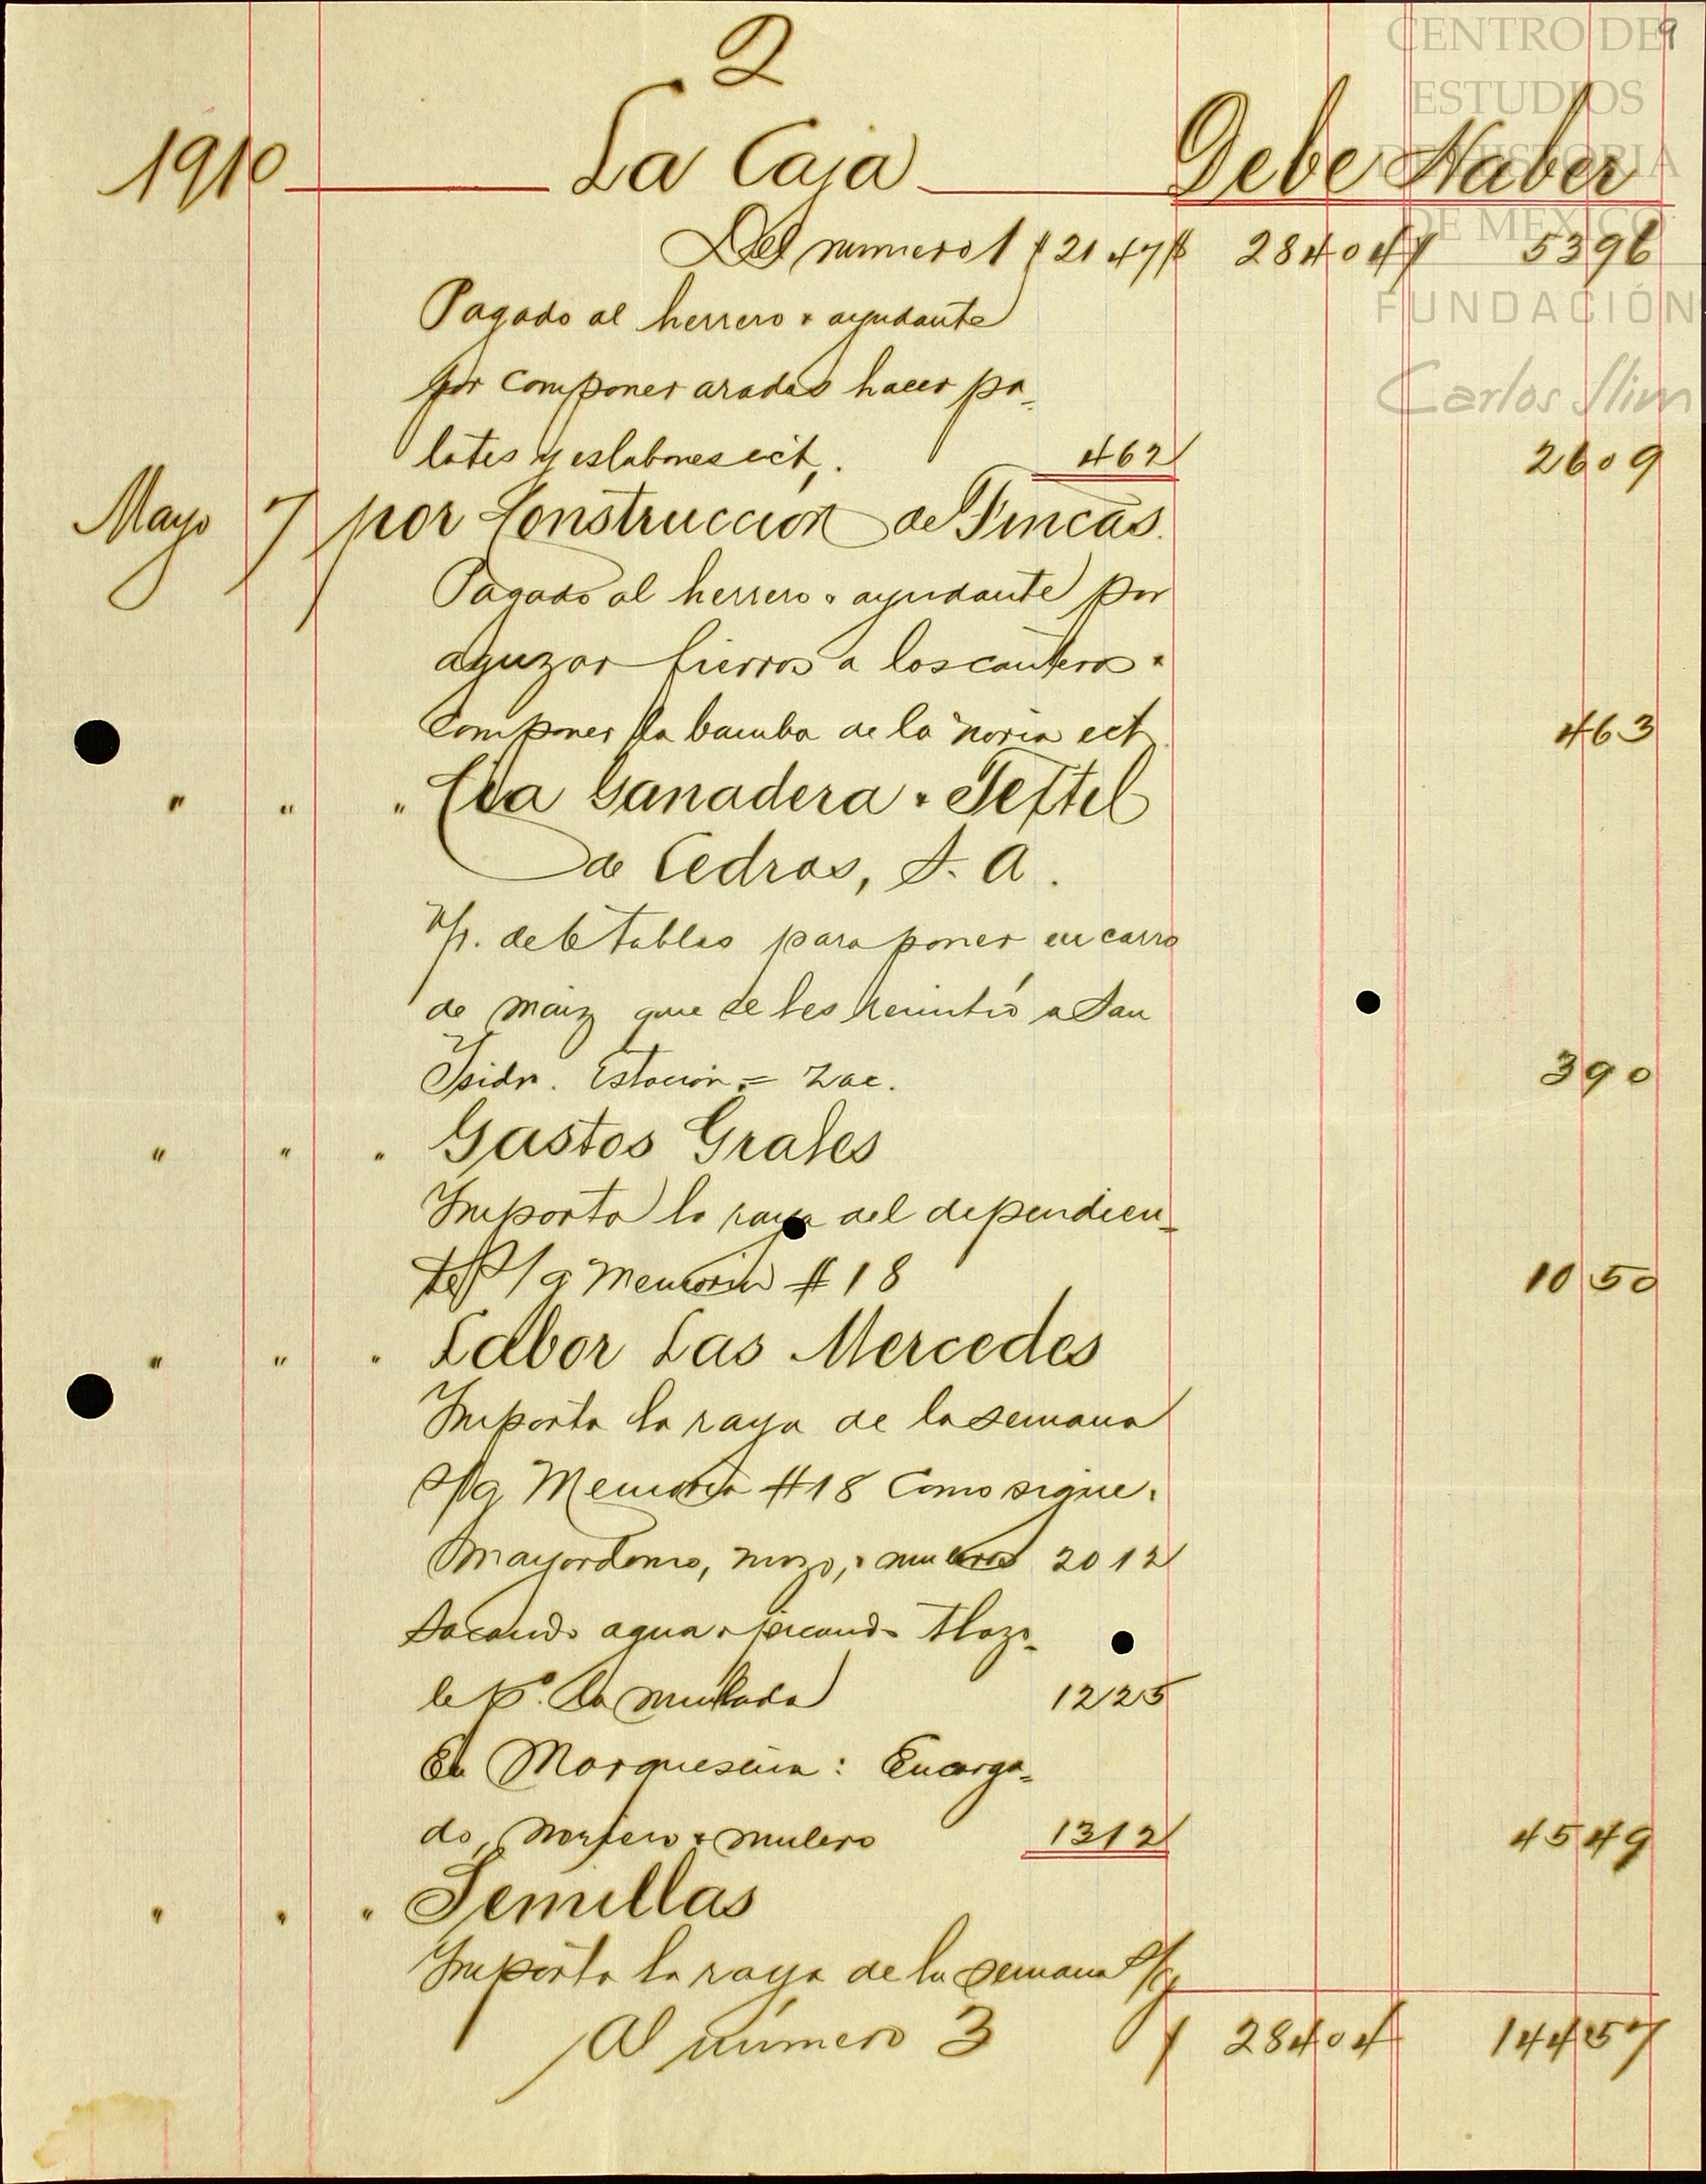 2
9
CENTRO DE
ESTUDIOS
DE HISTORIA
DE MEXICO
FUNDACIÓN
Carlos Slim
1910 La Caja Debe Haber
Del numero 1 $ 21 47 $ 284 04 $ 53 96
Pagado al herrero & ayudante
por componer arados hacer pa-
lotes y eslabones ect. 4 62 26 09
Mayo 7 por Construcción de Fincas.
Pagado al herrero & ayudante por
aguzar fierros a los canteros &
componer la bamba de la noria ect. 4 63
" " " Cia Ganadera & Textil
de Cedros, S. A.
de 6 tablas para poner en carro
de maiz que se les remitió a San
Isidro. Estación = Zac. 3 90
" " " Gastos Grales
Importa la raya del dependien-
te S/g Memoria # 18 10 50
" " " Labor Las Mercedes
Importa la raya de la semana
S/g Memoria #18 Como sigue.
Mayordomo, mozo, & muleros 20 12
Sacando agua & picando tlazo-
le pª. la mulada 12 25
En Marqueseña: Encarga-
do, & mulero 13 12 45 49
" " " Semillas
Importa la raya de la semana S/g
Al número 3 $ 284 04 144 57